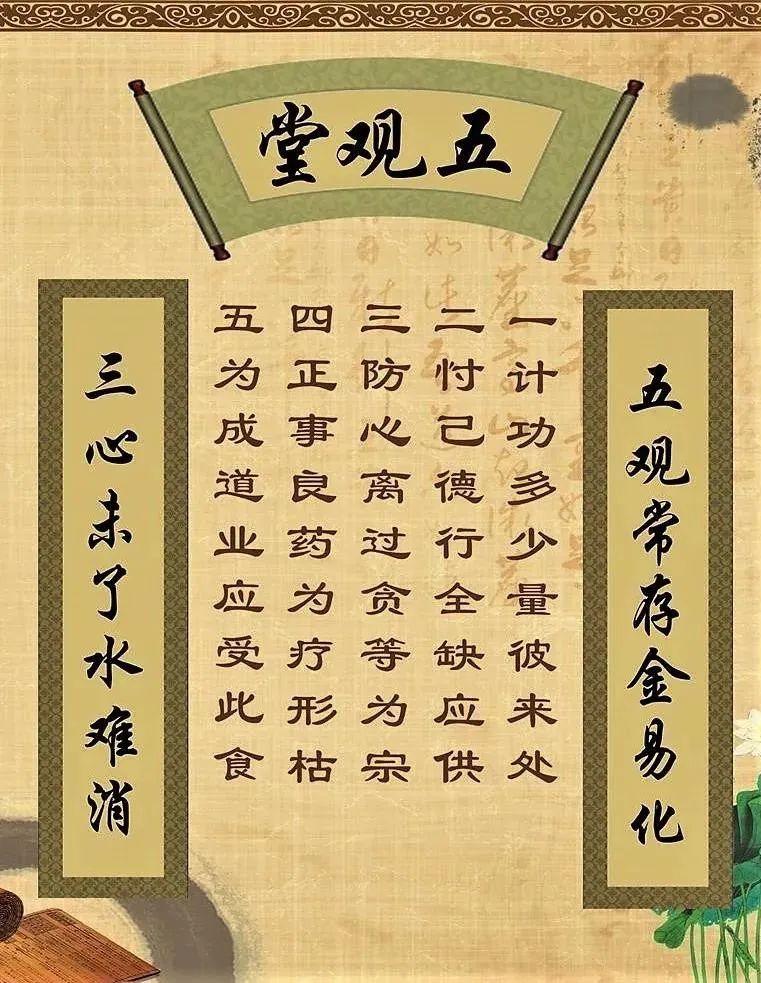 五观堂
五观常存金易化
一计功多少量彼来处
二忖己德行全缺应供
三防心离过贪等为宗
四正事良药为疗形枯
五为成道业应受此食
三心未了水难消